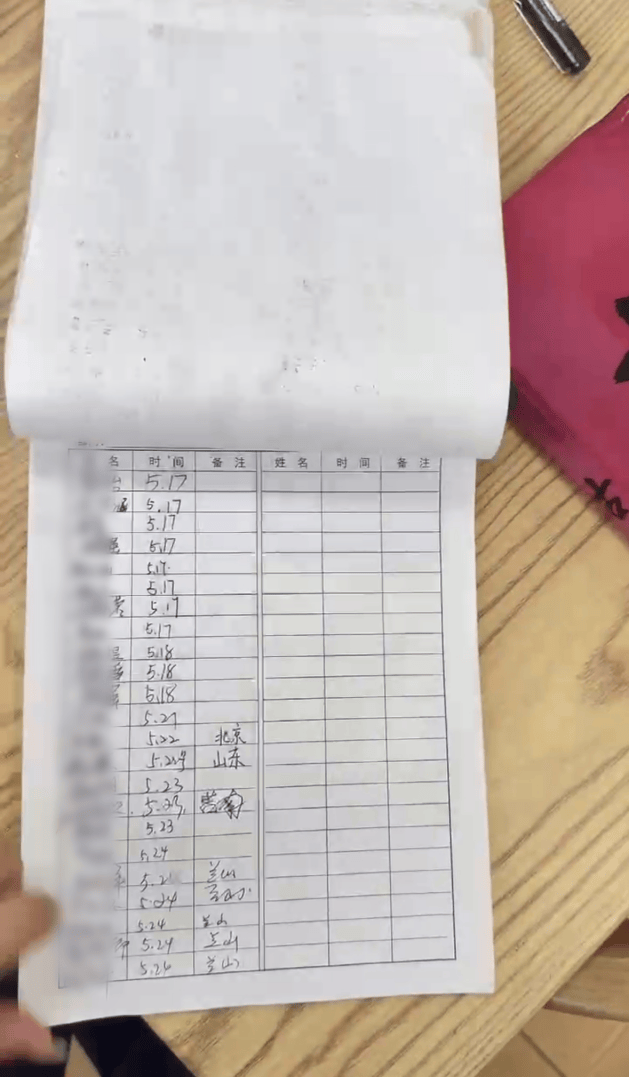 名 时间 备注 姓名 时间 备注
5.17
5.17
5.17
5.17
5.17
5.17
5.17
5.17
5.18
5.18
5.18
5.21
5.22 北京
山东
5.23
5.23 莒南
5.23
5.24
兰山
5.24
5.24 兰山
5.24 兰山
5.26 兰山